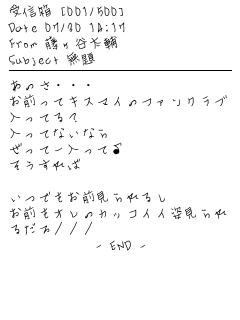 受信箱 [001/500]
Date 07/30 18:17
From 藤ヶ谷太輔
Subject 無題
あのさ・・・
お前ってキスマイのファンクラブ
入ってる?
入ってないなら
ぜってー入って♪
そうすれば
いつでもお前見られるし
お前もオレのカッコイイ姿見られ
るだぉ///
- END -